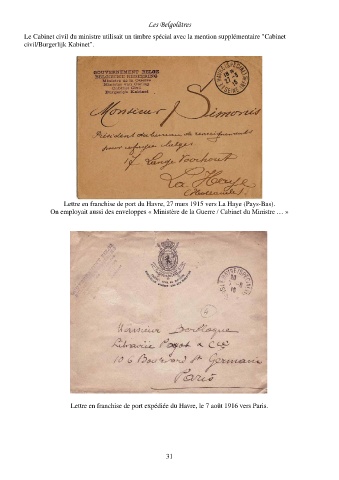 Les Belgolâtres
Le Cabinet civil du ministre utilisait un timbre spécial avec la mention supplémentaire "Cabinet
civil/Burgerlijk Kabinet".
GOUVERNEMENT BELGE
Ministère de la Guerre
Cabinet Civil
Burgerlijk Kabinet
Monsieur Simonis
Président du bureau de renseignements
pour refugiés belges
17 Lange Voorhout
La Haye
Lettre en franchise de port du Havre, 27 mars 1915 vers La Haye (Pays-Bas).
On employait aussi des enveloppes « Ministère de la Guerre / Cabinet du Ministre … »
Monsieur
Librairie Payot & Cie
106 Boulevard St Germain
Paris
Lettre en franchise de port expédiée du Havre, le 7 août 1916 vers Paris.
31